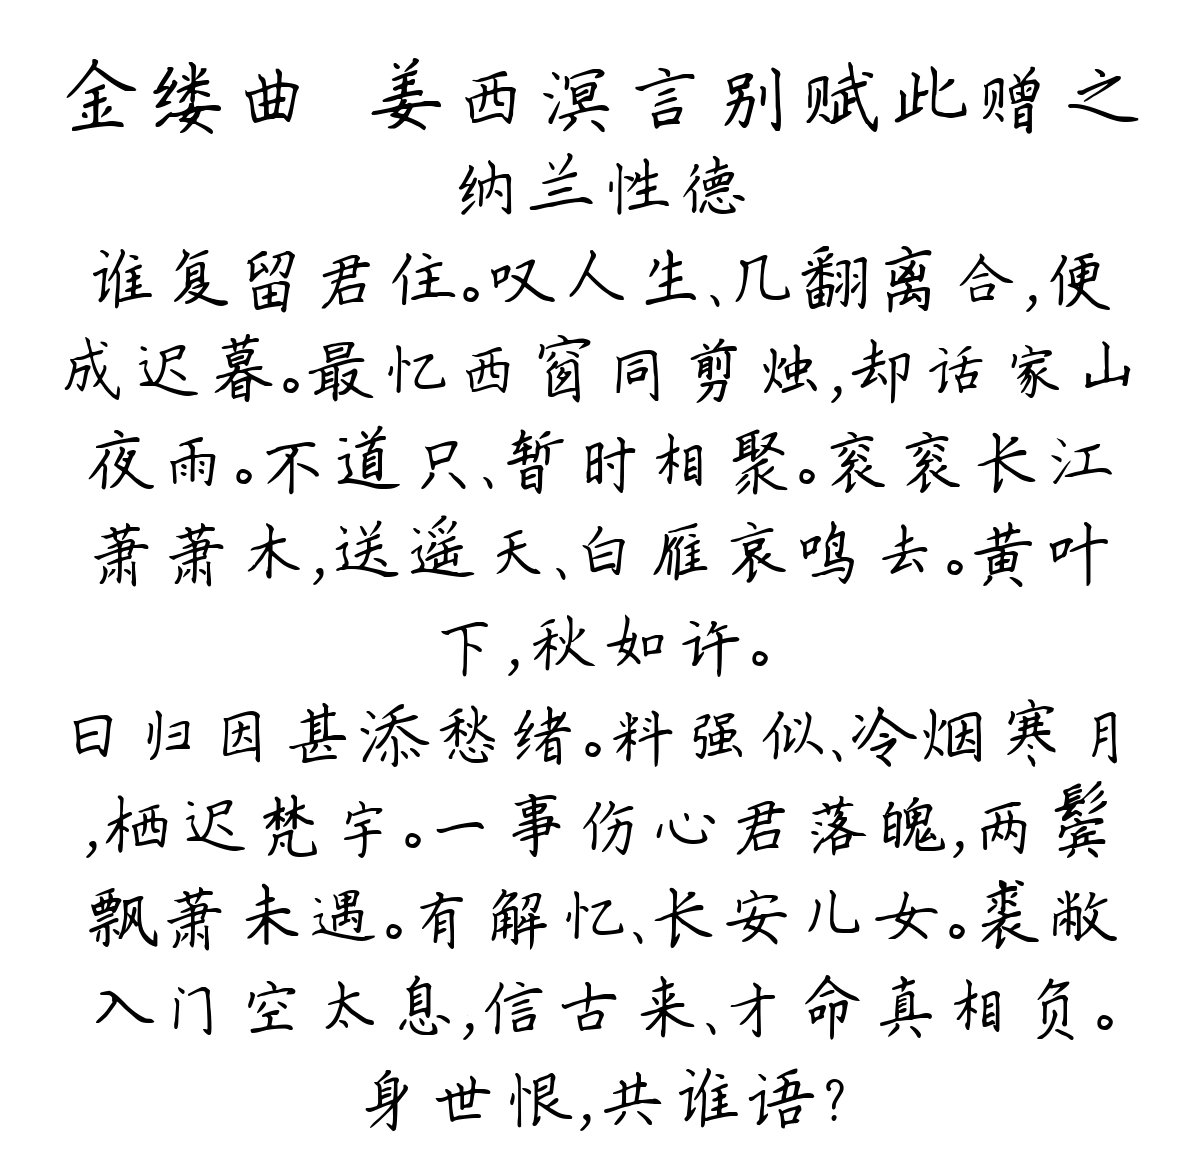 金缕曲 姜西溟言别赋此赠之
纳兰性德
谁复留君住。叹人生、几翻离合,便
成迟暮。最忆西窗同剪烛,却话家山
夜雨。不道只、暂时相聚。衮衮长江
萧萧木,送遥天、白雁哀鸣去。黄叶
下,秋如许。
曰归因甚添愁绪。料强似、冷烟寒月
,栖迟梵宇。一事伤心君落魄,两鬓
飘萧未遇。有解忆、长安儿女。裘敝
入门空太息,信古来、才命真相负。
身世恨,共谁语?